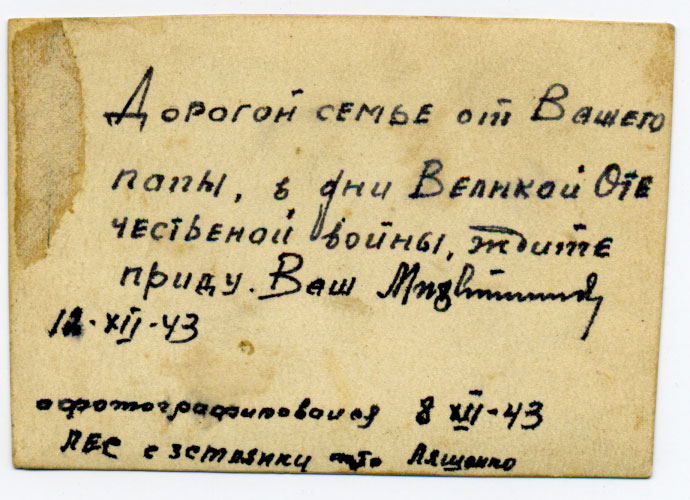 Дорогой семье от Вашего
папы, в дни Великой Оте
чественой войны, ждите
приду. Ваш
12-XII-43
сфотографировался 8 XII-43
ЛЕС с Ляшенко